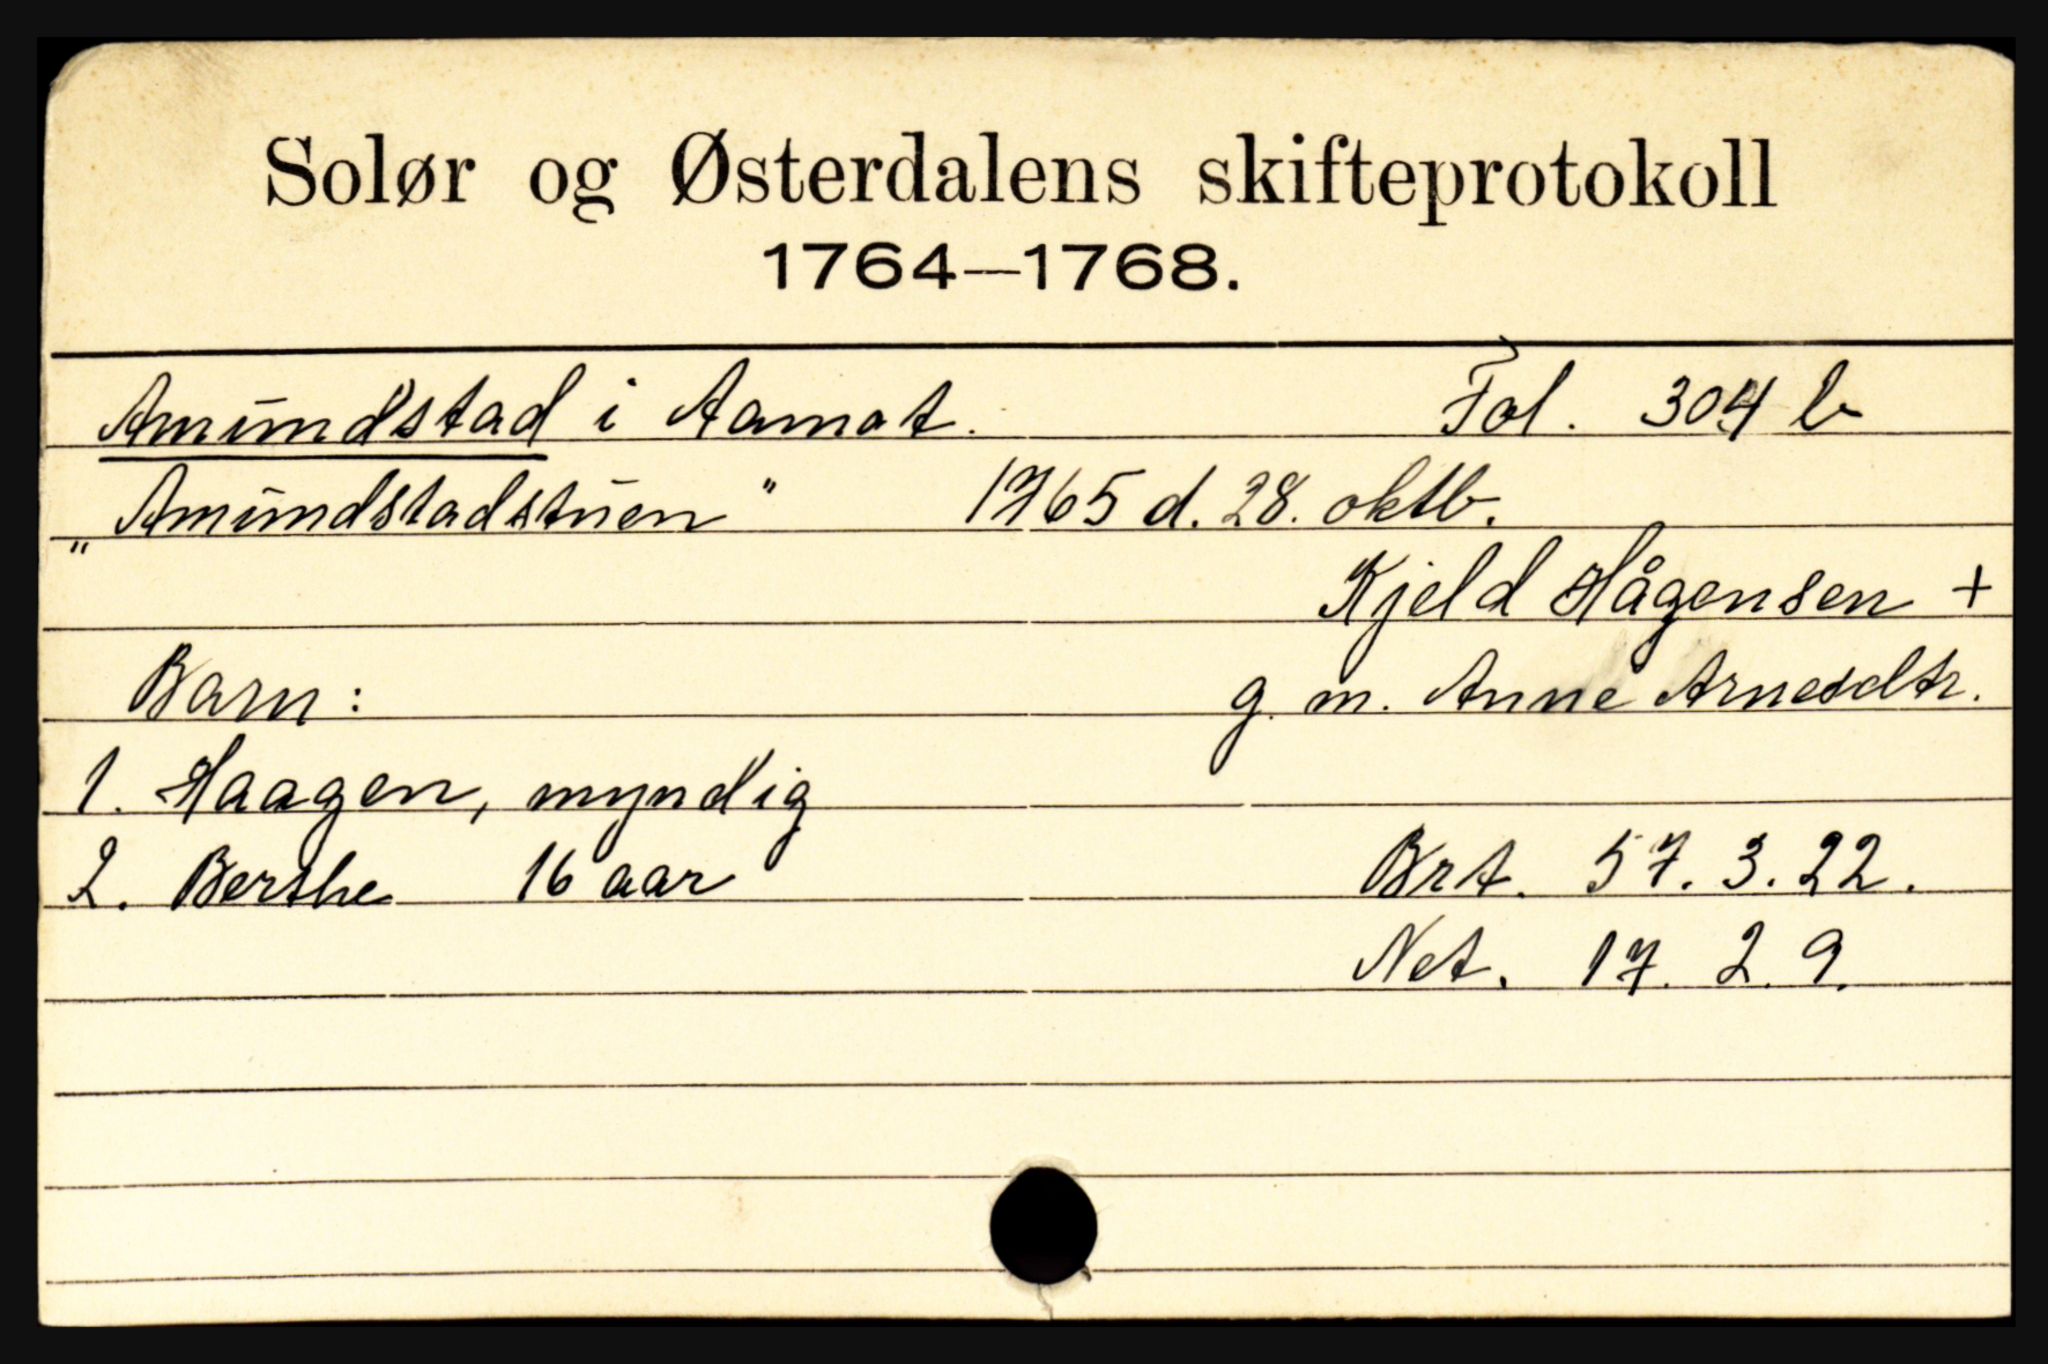 Solør og Østerdalens skifteprotokoll
1764—1768.
Amundstad i Aamot. Fol. 304 b
„Amundstadstuen" 1765 d. 28. oktb.
Kjeld Hågensen +
Barn: g. m. Anne Arnesdtr.
1. Haagen, myndig
2. Berthe 16 aar Brt. 57. 3. 22.
Net. 17. 2. 9.